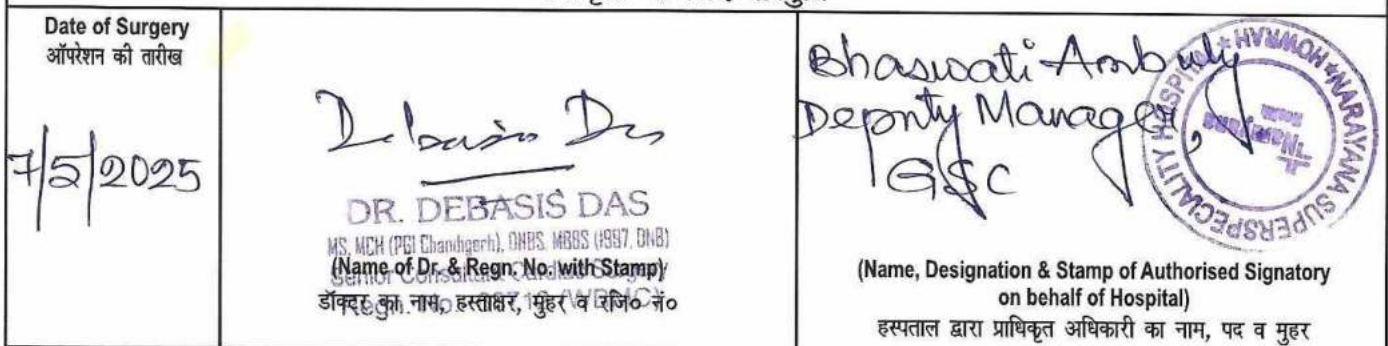 Date of Surgery
ऑपरेशन की तारीख
7/5/2025
Debasis Das
DR. DEBASIS DAS
MS, MCH (PGI Chandigarh), DNBS, MBBS (1997, DNB)
(Name of Dr. & Regn. No. with Stamp)
Senior Consultant Cardiac Surgery
डॉक्टर का नाम, हस्ताक्षर, मुहर व रजि० नं०
Bhaswati
Deputy Manager,
GSC
NARAYANA SUPERSPECIALITY HOSPITAL * HOWRAH *
(Name, Designation & Stamp of Authorised Signatory
on behalf of Hospital)
हस्पताल द्वारा प्राधिकृत अधिकारी का नाम, पद व मुहर